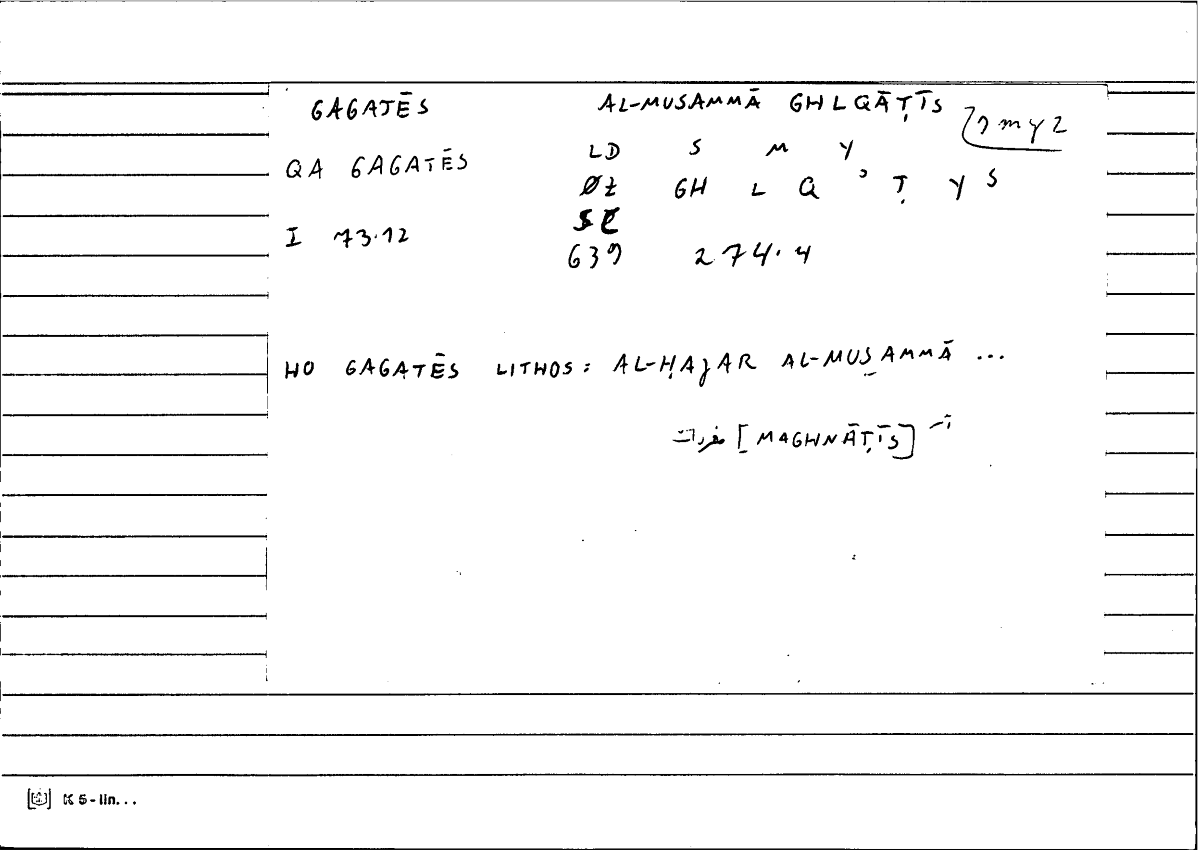 GAGATĒS AL-MUSAMMĀ GHLQĀṬĪS
QA GAGATĒS LD S M Y
ØZ GH L Q ʾ Ṭ Y S
I 73.12
639 274.4
HO GAGATĒS LITHOS: AL-ḤAJAR AL-MUSAMMĀ ...
مفردات [MAGHNĀṬĪS]
K 5-lin...